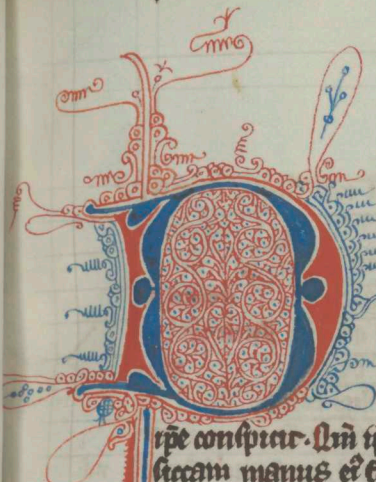 D
ip̄e conspicit. Qm̄
siccam manus eiꝰ